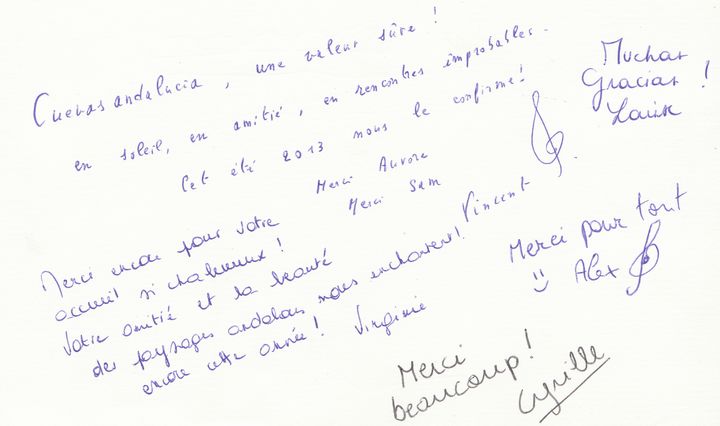 Cuevasandalucia, une valeur sûre !
en soleil, en amitié, en rencontres improbables.
Cet été 2013 nous le confirme !
Merci Aurore
Merci Sam
Vincent
Muchas
Gracias !
Louise
Merci encore pour votre
accueil si chaleureux !
Votre amitié et la beauté
des paysages andalous nous enchantent !
encore cette année ! Virginie
Merci pour tout
:) Alex
Merci
beaucoup !
Cyrille